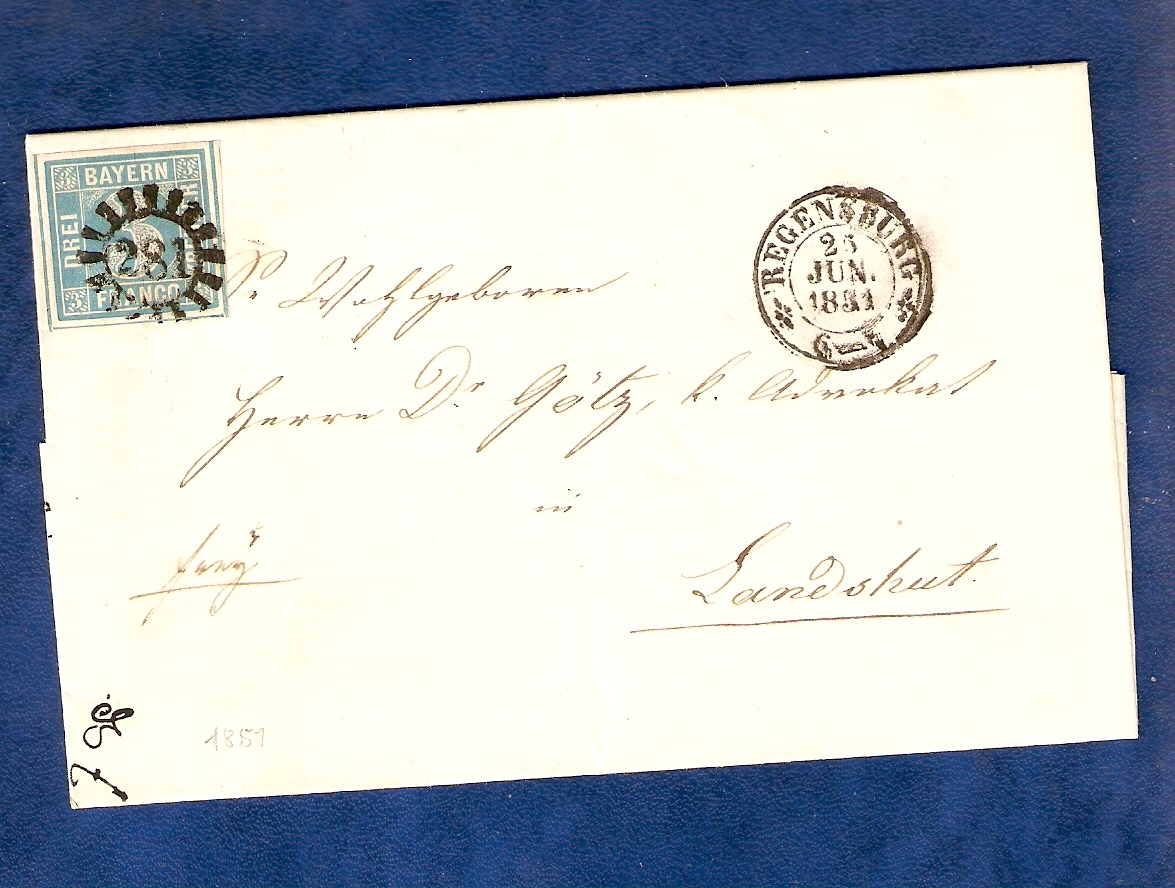 BAYERN
DREI
FRANCO
281
REGENSBURG
JUN.
1851
6–7
Sr Wohlgeboren
Herrn Dr Götz, k. Advokat
in
Landshut.
frey
1851